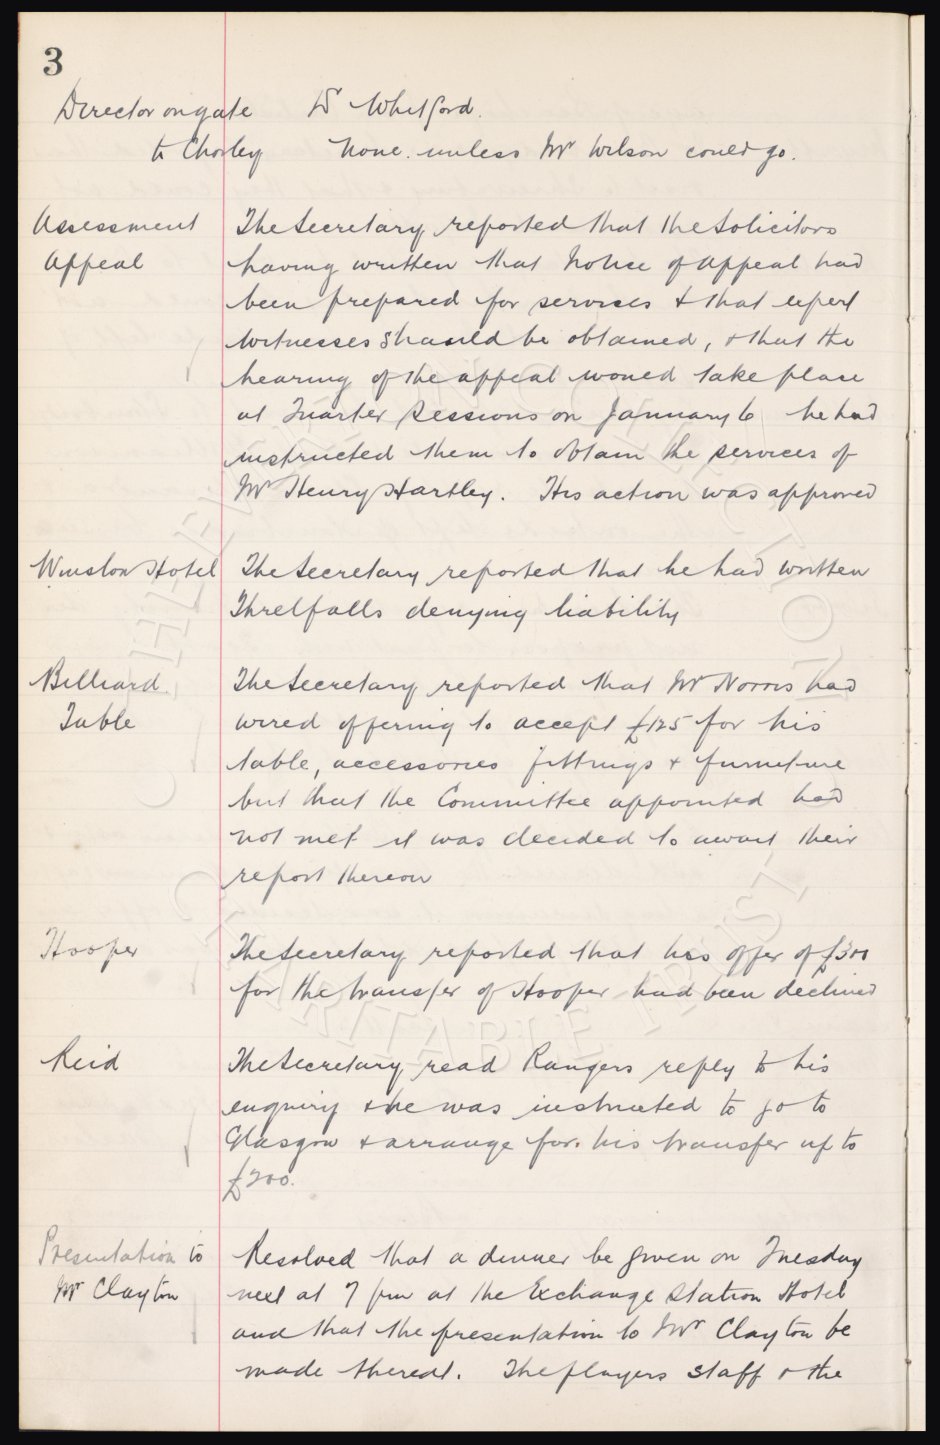 3
Director on gate Dr Whitford.
to Chorley None. unless Mr Wilson could go.
Assessment The Secretary reported that the Solicitors
Appeal having written that Notice of Appeal had
been prepared for services & that expert
witnesses should be obtained, & that the
hearing of the appeal would take place
at Quarter Sessions on January 6 he had
instructed them to obtain the services of
Mr Henry Hartley. His action was approved
Winslow Hotel The Secretary reported that he had written
Threlfalls denying liability
Billiard The Secretary reported that Mr Norris had
Table wired offering to accept £125 for his
table, accessories fittings & furniture
but that the Committee appointed had
not met it was decided to await their
report thereon
Hooper The Secretary reported that his offer of £300
for the transfer of Hooper had been declined
Reid The Secretary read Rangers reply to his
enquiry & he was instructed to go to
Glasgow & arrange for his transfer up to
£200.
Presentation to Resolved that a dinner be given on Tuesday
Mr Clayton next at 7 pm at the Exchange Station Hotel
and that the presentation to Mr Clayton be
made thereat. The players staff & the
THE EVERTON COLLECTION
CHARITABLE TRUST